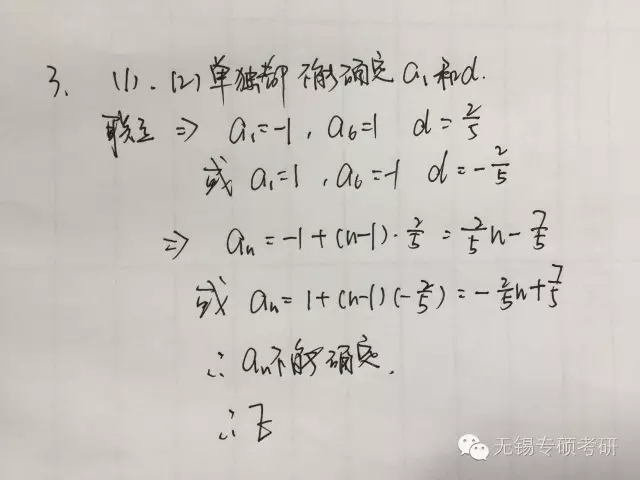 3、(1)、(2)单独都不能确定a₁和d.
联立 ⇒ a₁=-1，a₆=1 d=2/5
或 a₁=1，a₆=-1 d=-2/5
⇒ aₙ=-1+(n-1)·2/5=2/5n-7/5
或 aₙ=1+(n-1)(-2/5)=-2/5n+7/5
∴ aₙ不能确定.
∴ E
无锡专硕考研